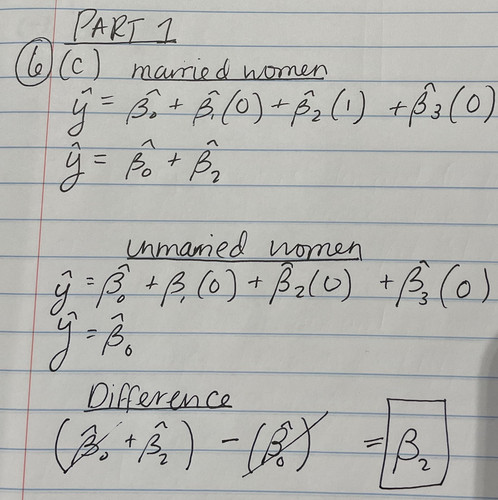 PART 1
(6) (c) married women
ŷ = β̂₀ + β̂₁(0) + β̂₂(1) + β̂₃(0)
ŷ = β̂₀ + β̂₂
unmarried women
ŷ = β̂₀ + β₁(0) + β̂₂(0) + β̂₃(0)
ŷ = β̂₀
Difference
(β̂₀ + β̂₂) - (β̂₀) = β₂